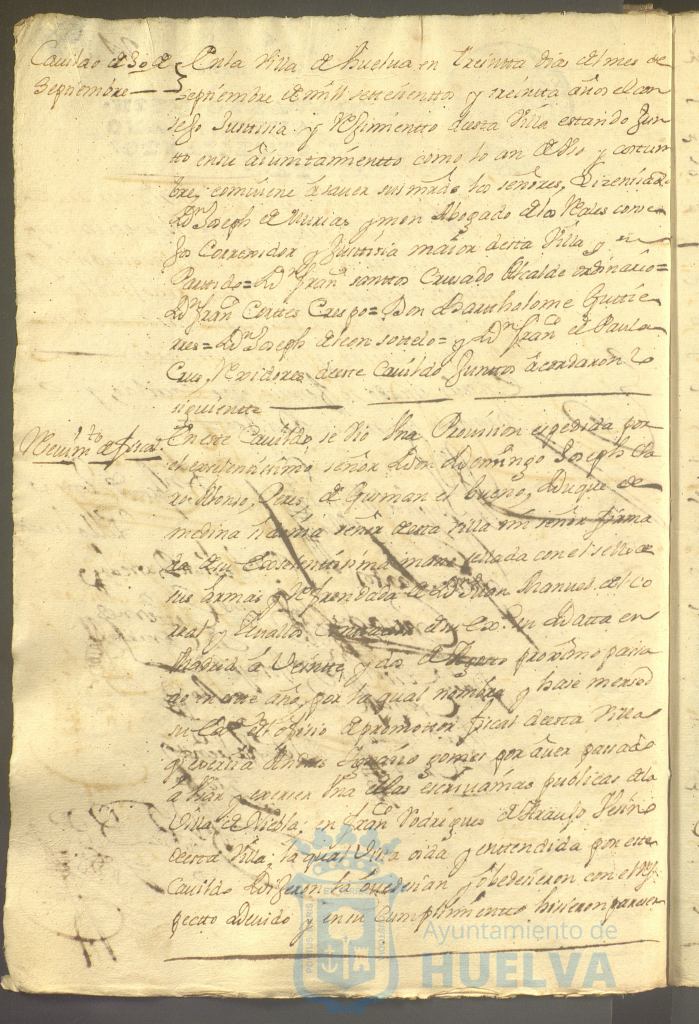 Cavildo de 30 de
Septiembre
En la Villa de Huelva en treintta dias del mes de
Septiembre de mill settecienttos y treinta años el con
sejo Justticia y Regimientto desta Villa estando Jun
tto en su aiuntamientto como lo an de uso y costum
bre, comviene a saver sus mrds los señores, Lizenciado
Dn Joseph de Murias y mon Abogado de los Reales conse
jos Correxidor y Justticia maior desta Villa y su
Parttido = Dn Franco santtos Crusado Alcalde ordinario =
Dn Franco Corttes Crespo = Don Bartholome Guttie
rres = Dn Joseph de leon sottelo = y Dn Franco de Paula
Cruz, Rexidores deste Cavildo Junttos acordaron lo
siguientte
Recivimto de fiscal
En este Cavildo se vio Una Provision expedida por
el exselentissimo señor Don Domingo Joseph Cla
ros Alonso, Peres de Guzman el bueno, Duque de
medina señor desta villa mi señor firma
da de su Exselentissima mano sellada con el sello de
sus armas y Refrendada de Dn Juan Manuel del Co
rral y Pinalla de su Exa su Datta en
Madrid a Veintte y dos de Agosto proximo pasa
do en este año, por la qual nombra y hase mersed
su Exa el ofisio de promottor fiscal desta Villa
q exersia Ignacio gomes por aver pasado
a Usar y exerser Una de las escrivanias publicas de la
Villa de Niebla, en Franco Rodrigues de Araujo Vezino
desta Villa; la qual Vista oida y enttendida por este
Cavildo Dixeron la ovedesian y obedesieron con el Res
pectto devido y en su Cumplimientto hisieron pareser
Ayuntamiento de
HUELVA